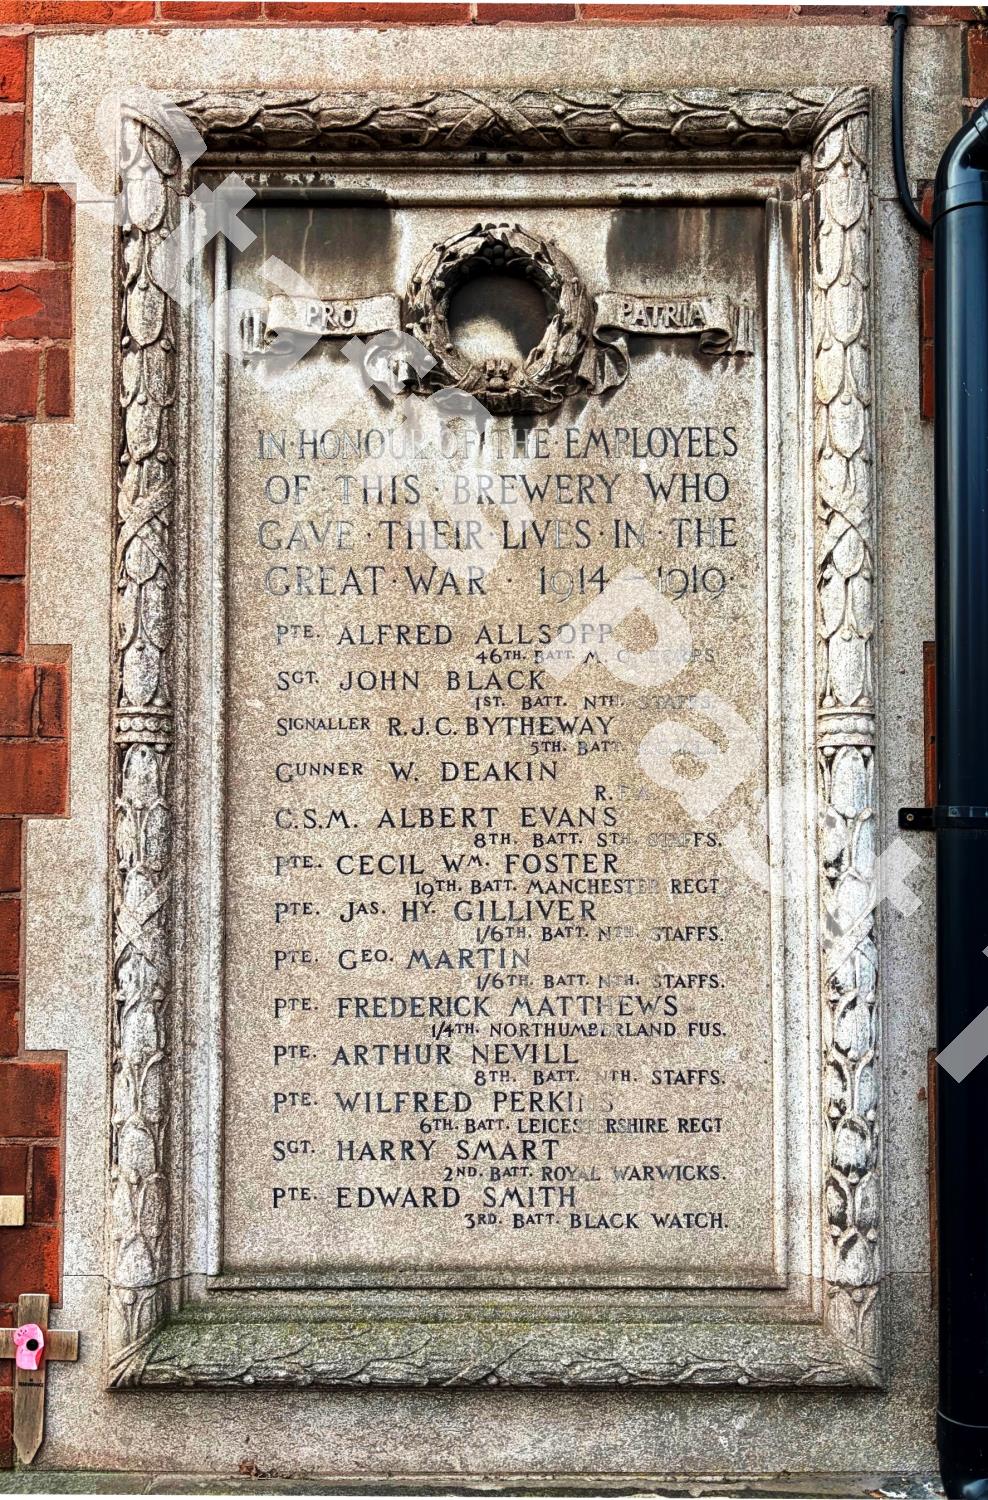 PRO PATRIA
IN·HONOUR·OF·THE·EMPLOYEES
OF·THIS·BREWERY WHO
GAVE·THEIR·LIVES·IN·THE
GREAT·WAR·1914–1919·
PTE. ALFRED ALLSOPP
46TH. BATT. M. G. CORPS
SGT. JOHN BLACK
1ST. BATT. NTH. STAFFS.
SIGNALLER R.J.C. BYTHEWAY
5TH. BATT.
GUNNER W. DEAKIN
R.F.A.
C.S.M. ALBERT EVANS
8TH. BATT. STH. STAFFS.
PTE. CECIL WM. FOSTER
19TH. BATT. MANCHESTER REGT
PTE. JAS. HY. GILLIVER
1/6TH. BATT. NTH. STAFFS.
PTE. GEO. MARTIN
1/6TH. BATT. NTH. STAFFS.
PTE. FREDERICK MATTHEWS
1/4TH. NORTHUMBERLAND FUS.
PTE. ARTHUR NEVILL
8TH. BATT. NTH. STAFFS.
PTE. WILFRED PERKINS
6TH. BATT. LEICESTERSHIRE REGT
SGT. HARRY SMART
2ND. BATT. ROYAL WARWICKS.
PTE. EDWARD SMITH
3RD. BATT. BLACK WATCH.